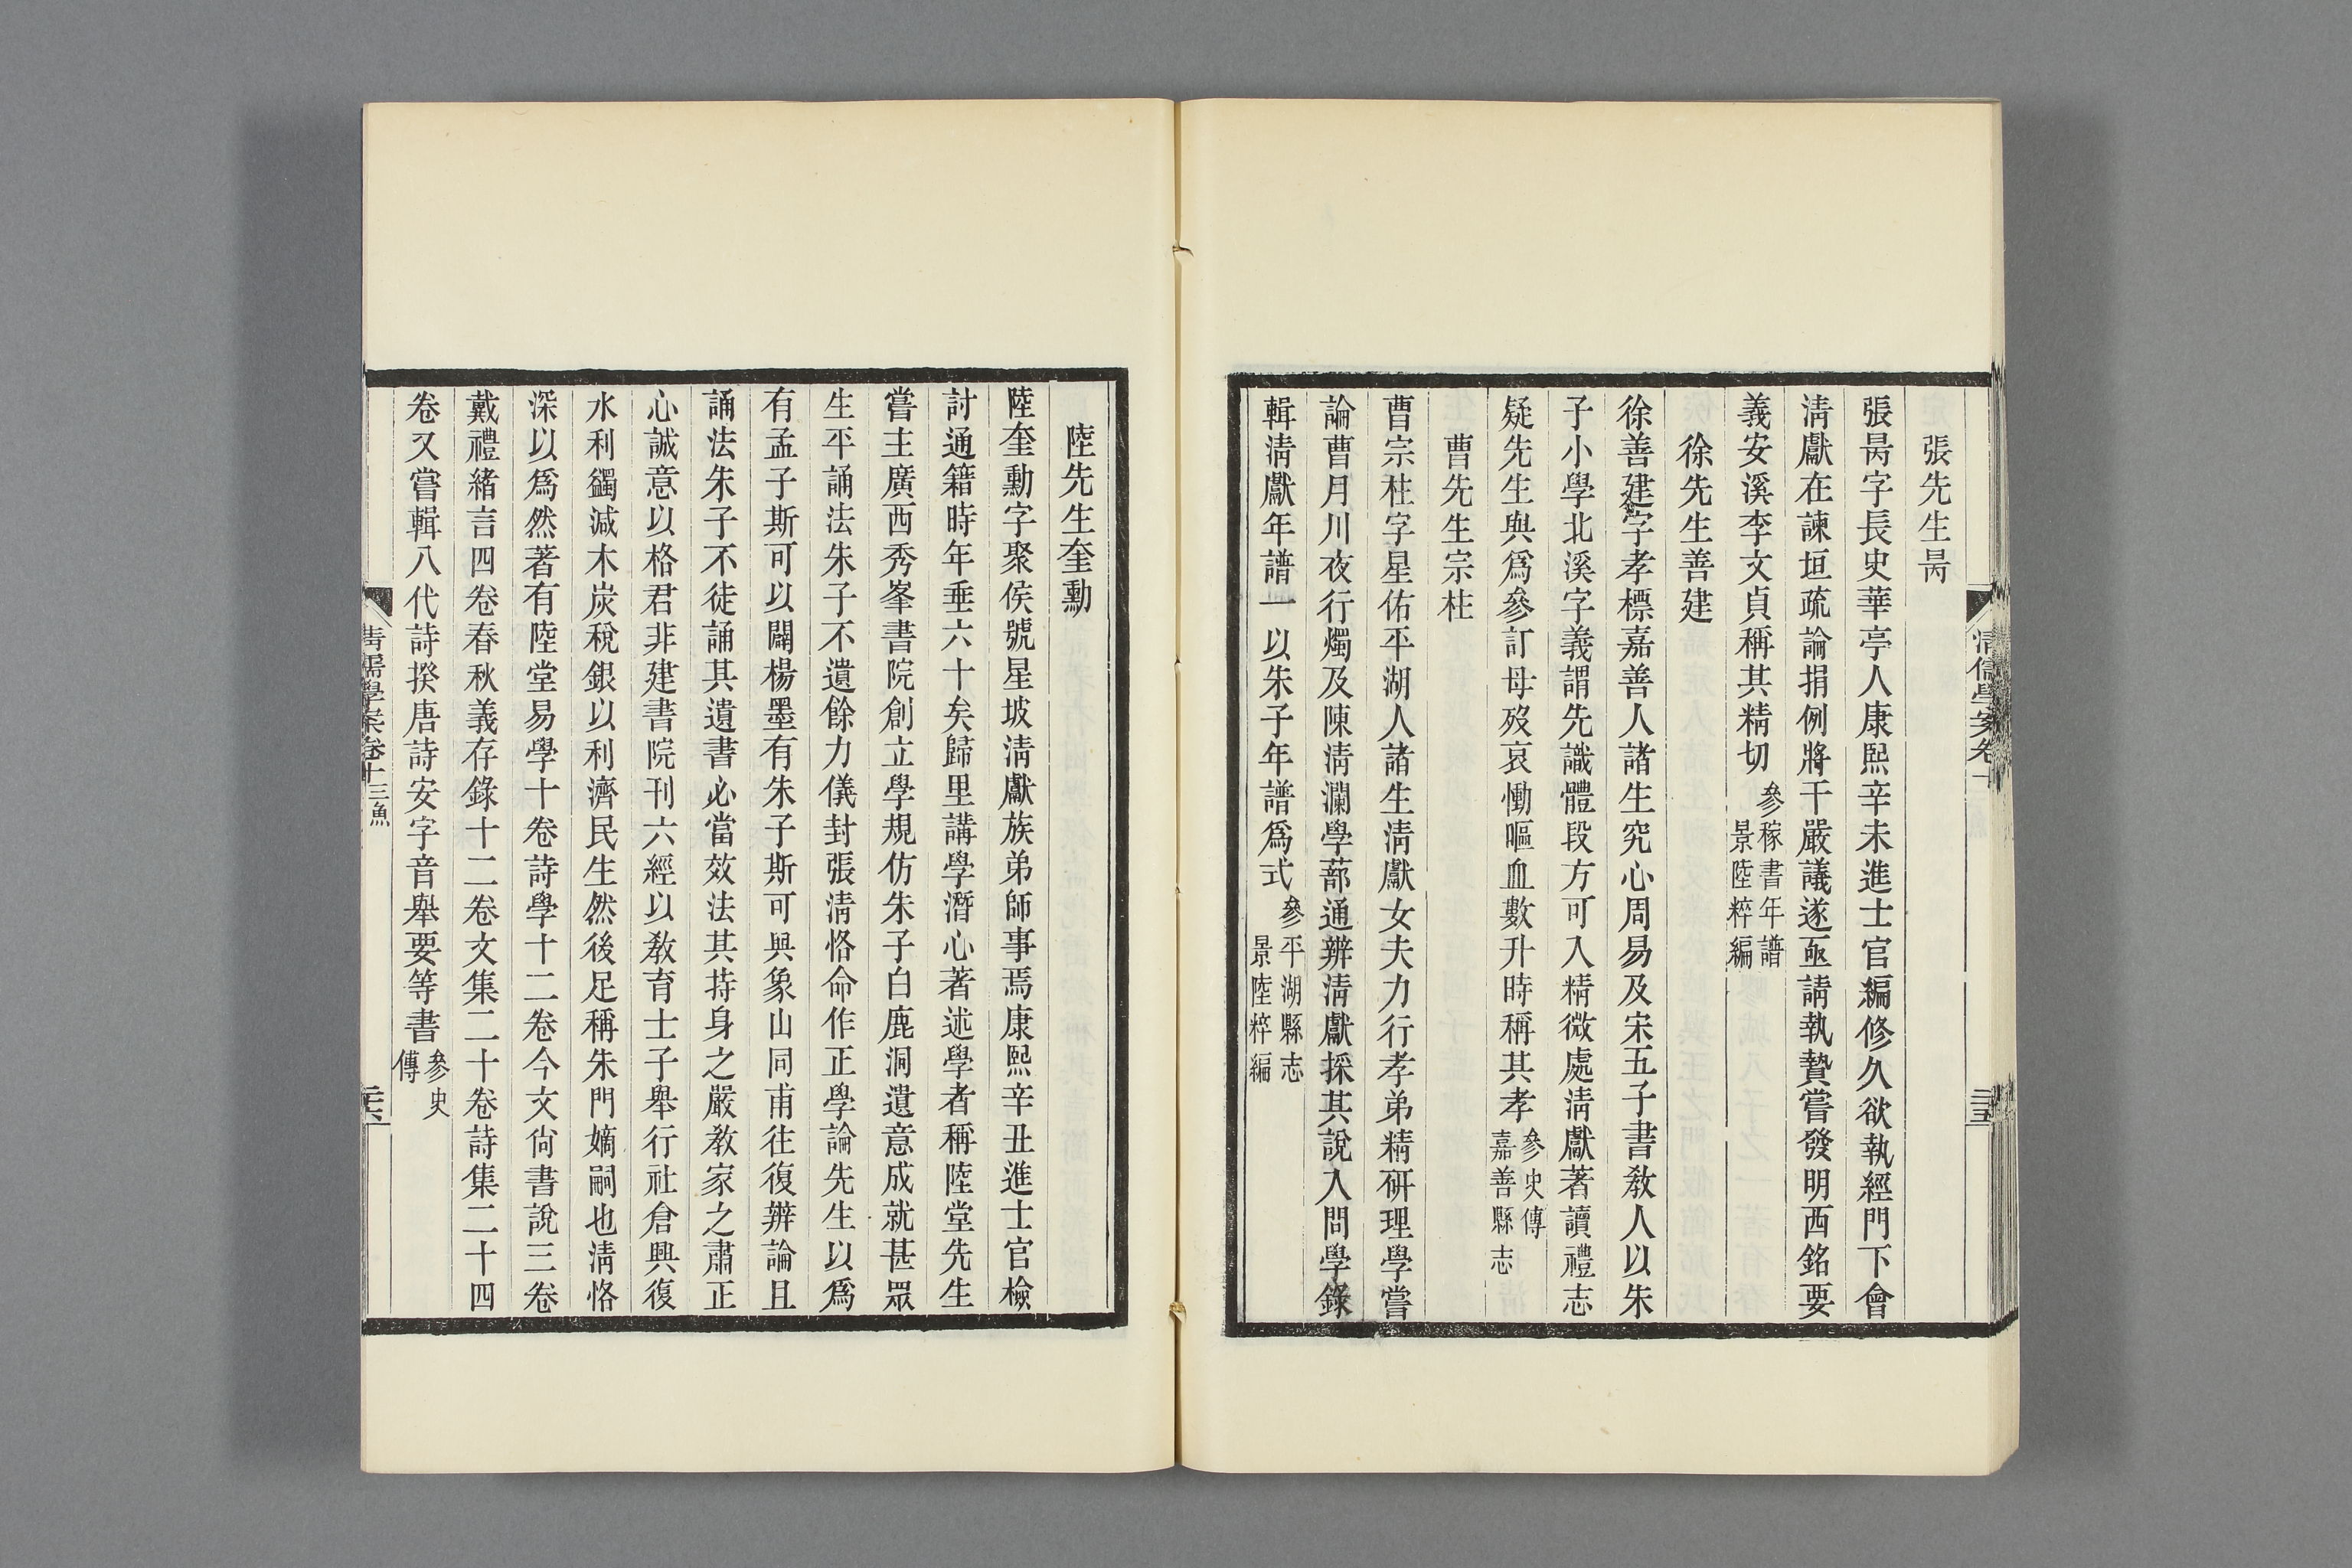 張先生昺
張昺字長史華亭人康熙辛未進士官編修久欲執經門下會
淸獻在諫垣疏論捐例將干嚴議遂亟請執贄嘗發明西銘要
義安溪李文貞稱其精切參稼書年譜景陸粹編
徐先生善建
徐善建字孝標嘉善人諸生究心周易及宋五子書敎人以朱
子小學北溪字義謂先識體段方可入精微處淸獻著讀禮志
疑先生與爲參訂母歿哀慟嘔血數升時稱其孝參史傳嘉善縣志
曹先生宗柱
曹宗柱字星佑平湖人諸生淸獻女夫力行孝弟精研理學嘗
論曹月川夜行燭及陳淸瀾學蔀通辨淸獻採其說入問學錄
輯淸獻年譜一以朱子年譜爲式參平湖縣志景陸粹編
陸先生奎勳
陸奎勳字聚侯號星坡淸獻族弟師事焉康熙辛丑進士官檢
討通籍時年垂六十矣歸里講學潛心著述學者稱陸堂先生
嘗主廣西秀峯書院創立學規仿朱子白鹿洞遺意成就甚眾
生平誦法朱子不遺餘力儀封張淸恪命作正學論先生以爲
有孟子斯可以闢楊墨有朱子斯可與象山同甫往復辨論且
誦法朱子不徒誦其遺書必當效法其持身之嚴敎家之肅正
心誠意以格君非建書院刊六經以敎育士子舉行社倉興復
水利蠲減木炭稅銀以利濟民生然後足稱朱門嫡嗣也淸恪
深以爲然著有陸堂易學十卷詩學十二卷今文尙書說三卷
戴禮緒言四卷春秋義存錄十二卷文集二十卷詩集二十四
卷又嘗輯八代詩揆唐詩安字音舉要等書參史傳
淸儒學案卷十三魚